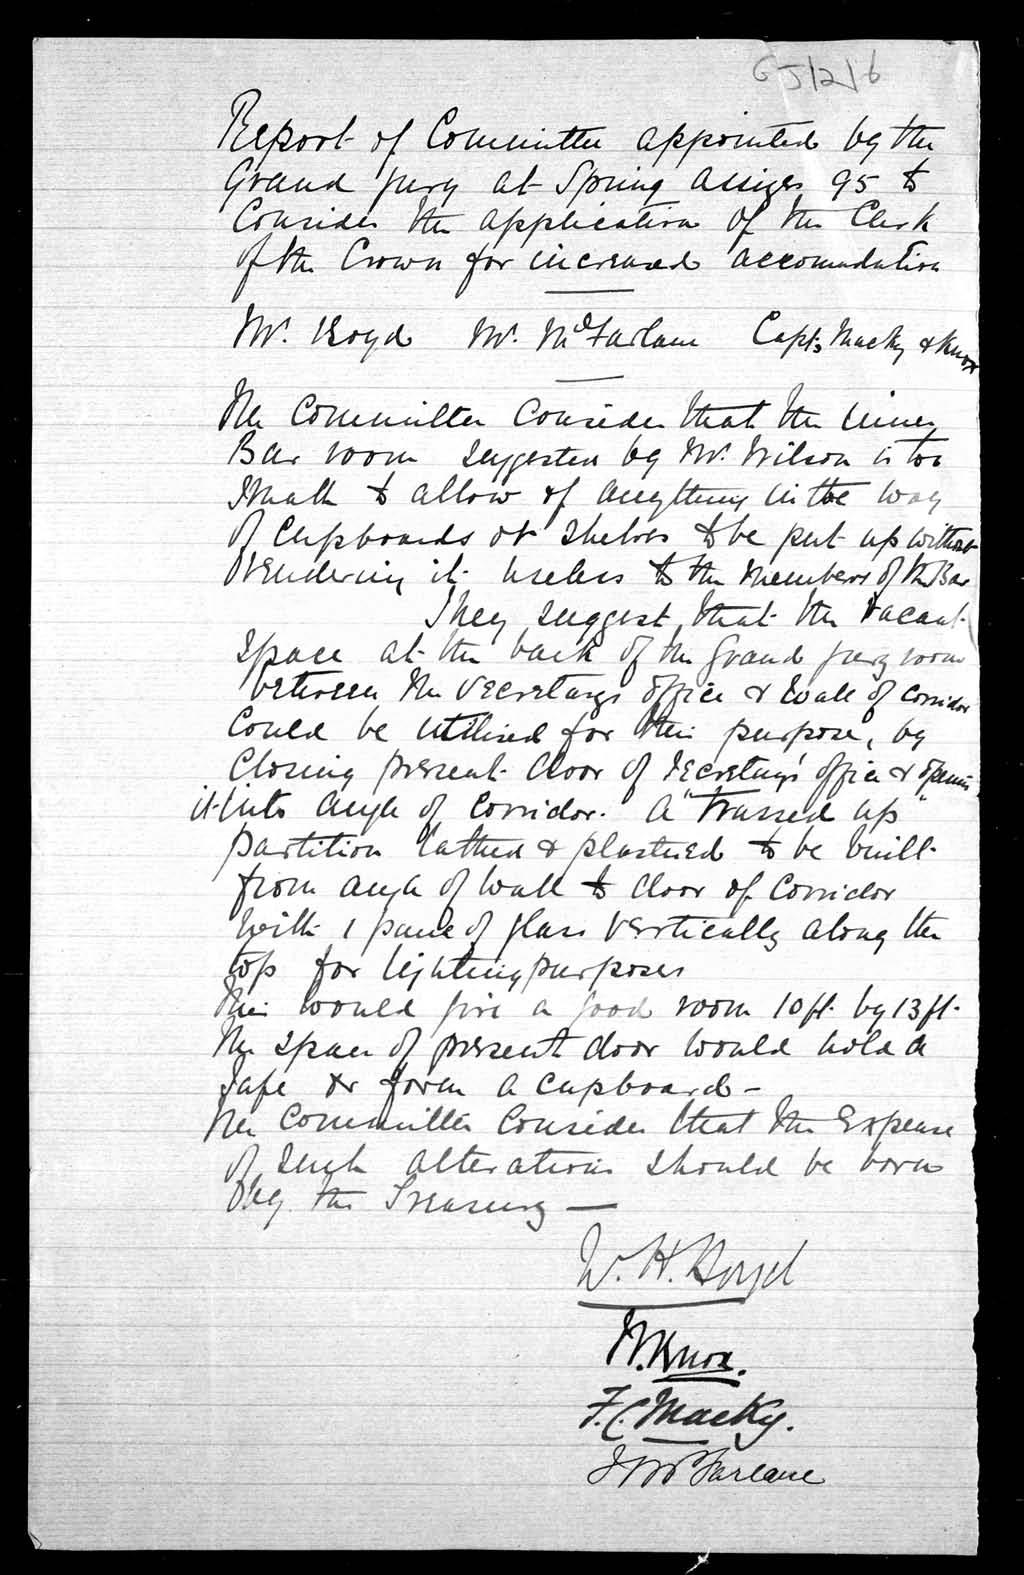 GJ/2/6
Report of Committee appointed by the
Grand Jury at Spring Assizes 95 to
Consider the application of the Clerk
of the Crown for increased accomodation
Mr. Boyd Mr. McFarlane Capts Macky & Knox
The Committee Consider that the inner
Bar room suggested by Mr. Wilson is too
small to allow of anything in the way
of Cupboards or shelves to be put up without
rendering it useless to the members of the Bar
They suggest that the vacant
space at the back of the Grand jury room
between the Secretarys office & wall of corridor
Could be utilised for this purpose, by
Closing present door of Secretary's office & opening
it into angle of Corridor. A "trussed up"
partition lathed & plastered to be built
from angle of wall to door of Corridor
with 1 pane of glass vertically along the
top for lighting purposes
This would give a good room 10ft. by 13ft.
The space of present door would hold a
safe or form a cupboard -
The Committee Consider that the Expense
of such alterations should be born
by the Treasury —
W. H. Boyd
Knox.
F.C. Macky.
McFarlane